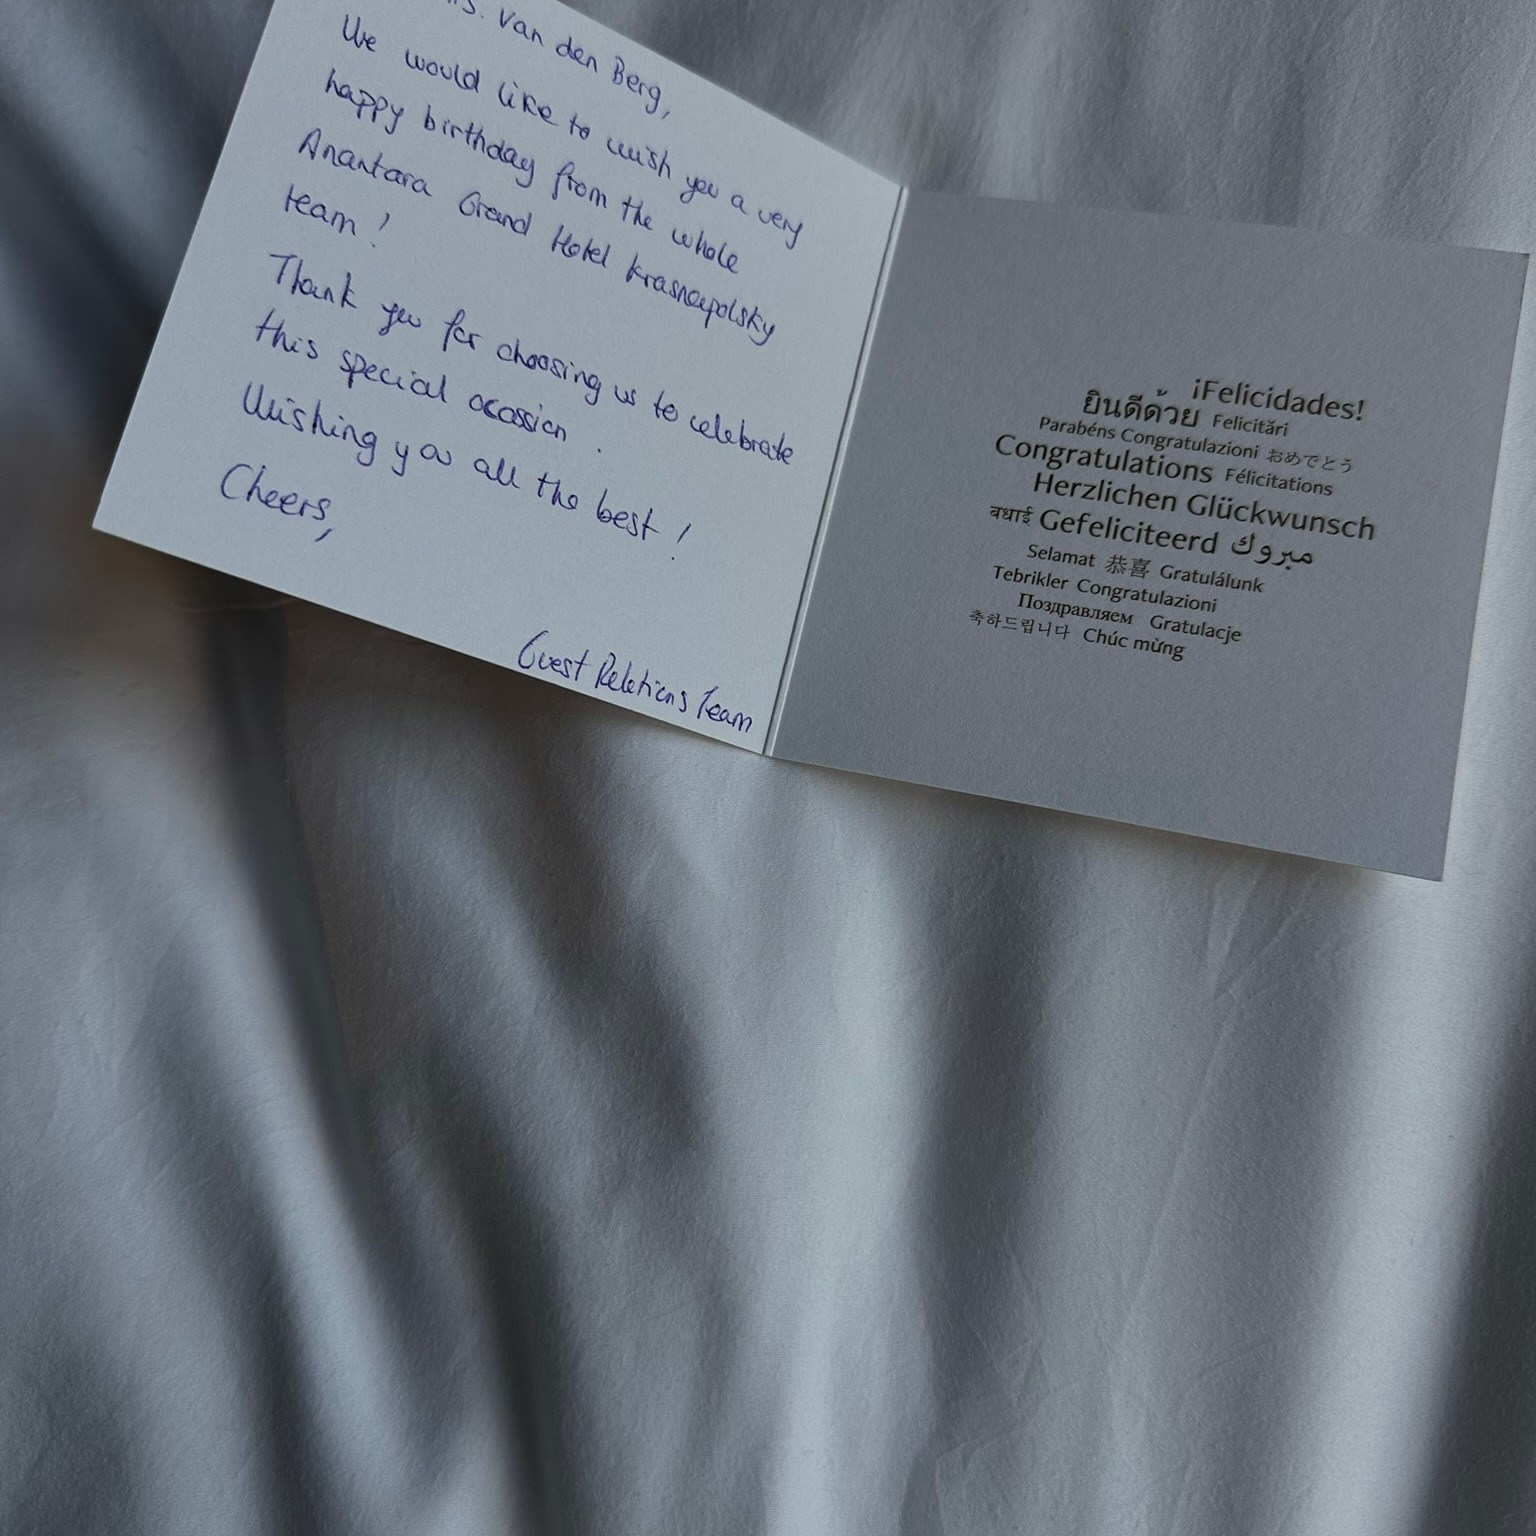 Van den Berg,
We would like to wish you a very
happy birthday from the whole
Anantara Grand Hotel Krasnapolsky
team!
Thank you for choosing us to celebrate
this special ocassion.
Wishing you all the best!
Cheers,
Guest Relations Team
¡Felicidades!
ยินดีด้วย Felicitări
Parabéns Congratulazioni おめでとう
Congratulations Félicitations
Herzlichen Glückwunsch
बधाई Gefeliciteerd مبروك
Selamat 恭喜 Gratulálunk
Tebrikler Congratulazioni
Поздравляем Gratulacje
축하드립니다 Chúc mừng